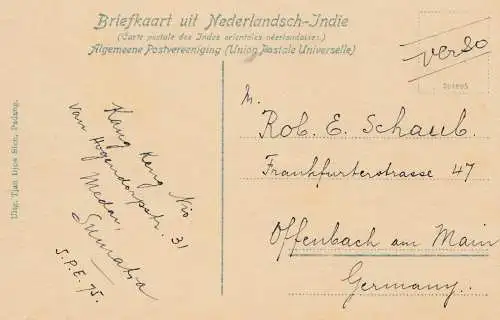 Briefkaart uit Nederlandsch-Indie
(Carte postale des Indes orientales néerlandaises.)
Algemeene Postvereeniging (Union Postale Universelle)
verso
M.
Rob. E. Schaub.
Frankfurterstrasse 47
Offenbach am Main
Germany.
Kang Keng Nio
van Hogendorpstr. 31
Medan,
Sumatra
J.P.E. 75.
Uitg. Tjan Djoe Sien, Padang.